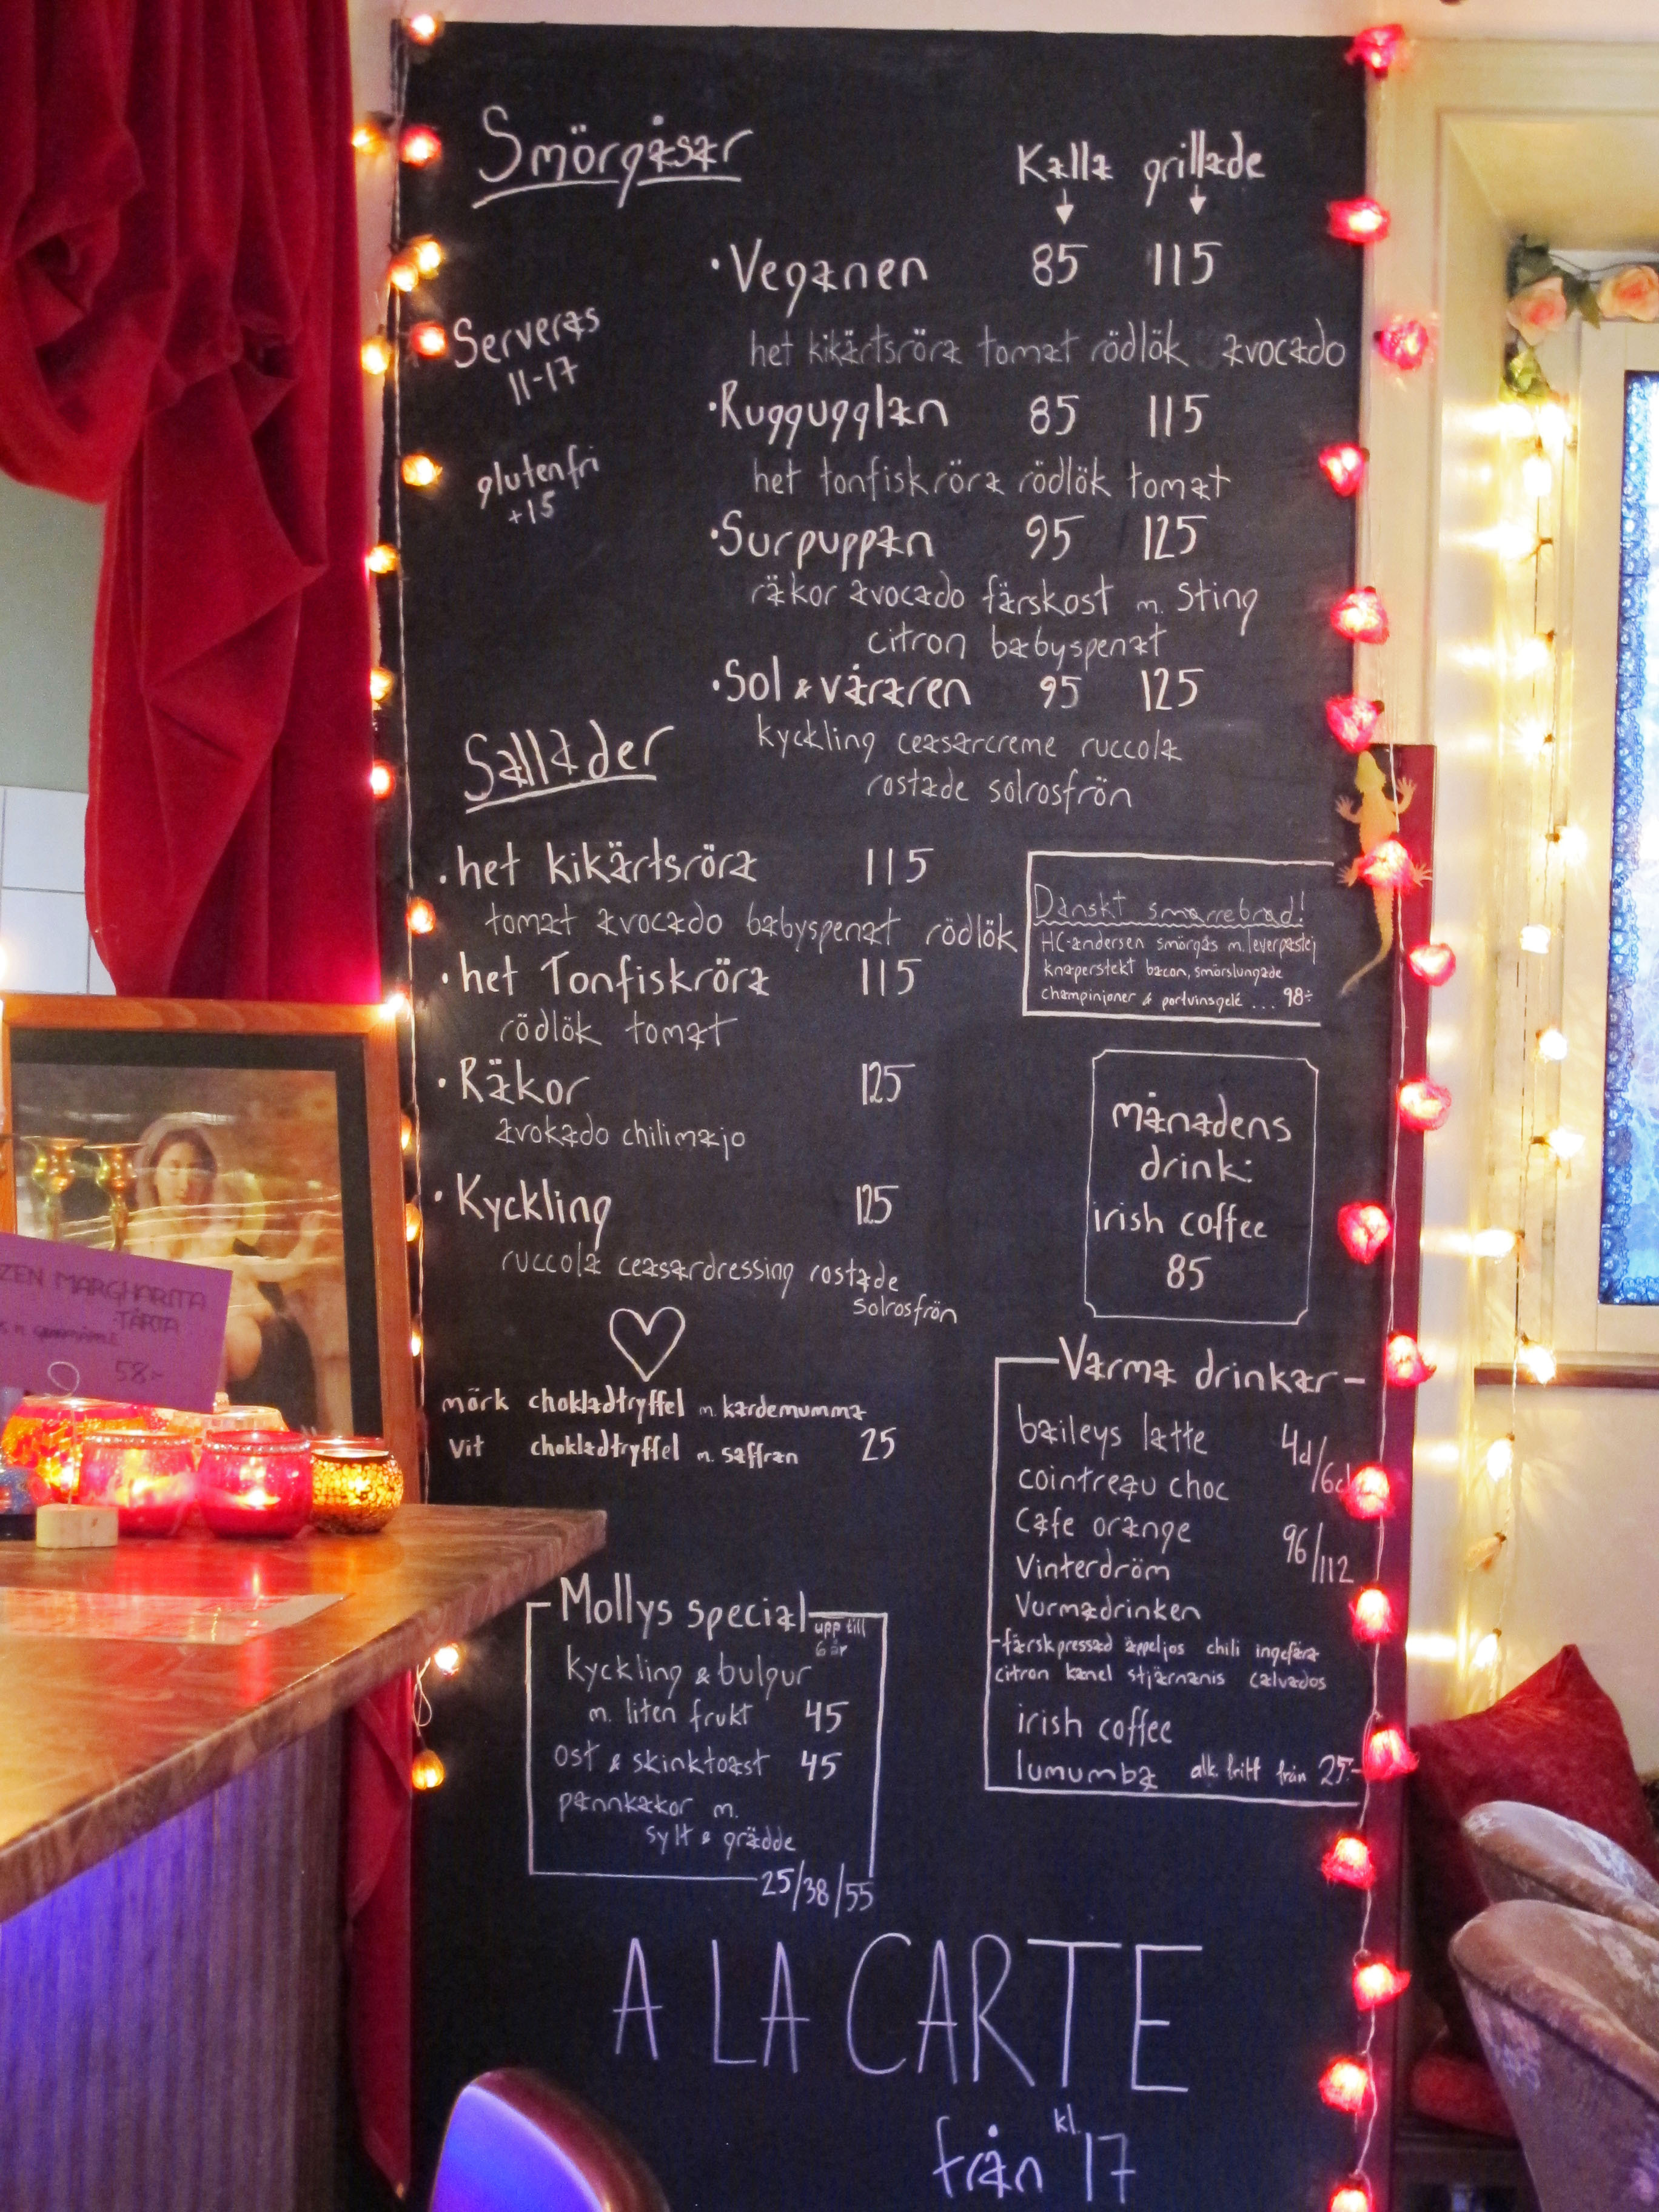 Smörgåsar
Kalla grillade
Serveras
11-17
glutenfri
+15
·Veganen 85 115
het kikärtsröra tomat rödlök avocado
·Ruggugglan 85 115
het tonfiskröra rödlök tomat
·Surpuppan 95 125
räkor avocado färskost m. Sting
citron babyspenat
·Sol & våraren 95 125
kyckling ceasarcreme ruccola
rostade solrosfrön
Sallader
·het kikärtsröra 115
tomat avocado babyspenat rödlök
·het Tonfiskröra 115
rödlök tomat
·Räkor 125
avokado chilimajo
·Kyckling 125
ruccola ceasardressing rostade
solrosfrön
Danskt smørrebrød!
HC-andersen smörgås m. leverpastej
knaperstekt bacon, smörslungade
champinjoner & portvinsgelé ... 98:-
månadens
drink:
irish coffee
85
mörk chokladtryffel m. kardemumma
vit chokladtryffel m. saffran 25
Varma drinkar
baileys latte 4cl/6cl
cointreau choc
Cafe orange 96/112
Vinterdröm
Vurmadrinken
-färskpressad äppeljos chili ingefära
citron kanel stjärnanis calvados
irish coffee
lumumba alk. fritt från 25:-
Mollys special upp till
6 år
kyckling & bulgur
m. liten frukt 45
ost & skinktoast 45
pannkakor m.
sylt & grädde
25/38/55
A LA CARTE
från kl. 17
ZEN MARGHARITA
TÅRTA
58:-